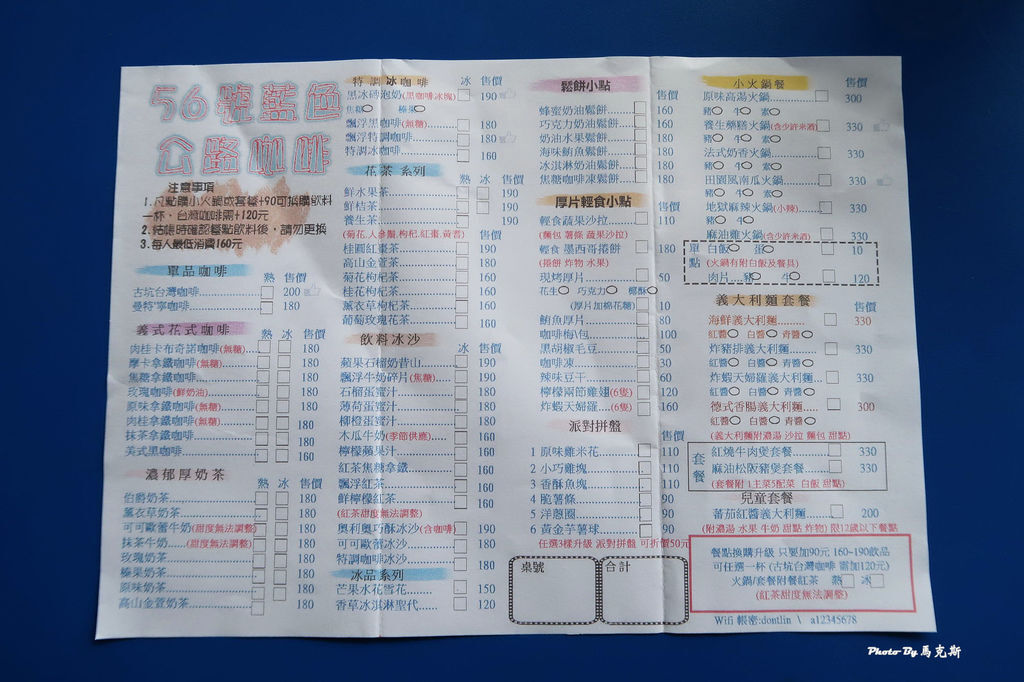 56號藍色
公路咖啡
注意事項
1.凡點購小火鍋或套餐+90可換購飲料
一杯，台灣咖啡需+120元
2.結帳時確認餐點飲料後，請勿更換
3.每人最低消費160元
單品咖啡 熱 售價
古坑台灣咖啡 200
曼特寧咖啡 180
義式花式咖啡 熱 冰 售價
肉桂卡布奇諾咖啡(無糖) 180
摩卡拿鐵咖啡(無糖) 180
焦糖拿鐵咖啡 180
玫瑰咖啡(鮮奶油) 180
原味拿鐵咖啡(無糖) 180
肉桂拿鐵咖啡(無糖) 180
抹茶拿鐵咖啡 180
美式黑咖啡 160
濃郁厚奶茶 熱 冰 售價
伯爵奶茶 180
薰衣草奶茶 180
可可歐蕾牛奶(甜度無法調整) 180
抹茶牛奶(甜度無法調整) 180
玫瑰奶茶 180
榛果奶茶 180
原味奶茶 180
高山金萱奶茶 180
特調冰咖啡 冰 售價
黑冰磚泡奶(黑咖啡冰塊) 190
焦糖 榛果
飄浮黑咖啡(無糖) 180
飄浮特調咖啡 180
特調冰咖啡 160
花茶系列 熱 冰 售價
鮮水果茶 190
鮮桔茶 190
養生茶 190
(菊花,人參鬚,枸杞,紅棗,黃耆)
桂圓紅棗茶 190
高山金萱茶 160
菊花枸杞茶 160
桂花枸杞茶 160
薰衣草枸杞茶 160
葡萄玫瑰花茶 160
飲料冰沙 冰 售價
蘋果石榴奶昔山 190
飄浮牛奶碎片(焦糖) 190
石榴蛋蜜汁 180
薄荷蛋蜜汁 180
柳橙蛋蜜汁 180
木瓜牛奶(季節供應) 160
檸檬蘋果汁 160
紅茶焦糖拿鐵 160
飄浮紅茶 160
鮮檸檬紅茶 160
(紅茶甜度無法調整)
奧利奧巧酥冰沙(含咖啡) 190
可可歐蕾冰沙 180
特調咖啡冰沙 180
冰品系列
芒果水花雪花 150
香草冰淇淋聖代 120
鬆餅小點 售價
蜂蜜奶油鬆餅 160
巧克力奶油鬆餅 160
奶油水果鬆餅 180
海味鮪魚鬆餅 180
冰淇淋奶油鬆餅 180
焦糖咖啡凍鬆餅 180
厚片輕食小點 售價
輕食蔬果沙拉 110
(麵包 薯條 蔬果沙拉)
輕食 墨西哥捲餅 180
(捲餅 炸物 水果)
現烤厚片 50
花生 巧克力 椰酥
(厚片加棉花糖) 10
鮪魚厚片 80
咖啡梅\包 100
黑胡椒毛豆 50
咖啡凍 30
辣味豆干 60
檸檬兩節雞翅(6隻) 120
炸蝦天婦羅(6隻) 160
派對拼盤 售價
1 原味雞米花 90
2 小巧雞塊 90
3 香酥魚塊 90
4 脆薯條 90
5 洋蔥圈 90
6 黃金芋薯球 90
任選3樣升級 派對拼盤 可折價50元
桌號 合計
小火鍋餐 售價
原味高湯火鍋 300
豬 牛 素
養生藥膳火鍋(含少許米酒) 330
豬 牛 素
法式奶香火鍋 330
豬 牛 素
田園風南瓜火鍋 330
豬 牛 素
地獄麻辣火鍋(小辣) 330
豬 牛
麻油雞火鍋(含少許米酒) 330
單點
白飯 蛋 10
(火鍋有附白飯及餐具)
肉片 豬 牛 120
義大利麵套餐 售價
海鮮義大利麵 330
紅醬 白醬 青醬
炸豬排義大利麵 330
紅醬 白醬 青醬
炸蝦天婦羅義大利麵 330
紅醬 白醬 青醬
德式香腸義大利麵 300
紅醬 白醬 青醬
(義大利麵附濃湯 沙拉 麵包 甜點)
套餐
紅燒牛肉煲套餐 330
麻油松阪豬煲套餐 330
(套餐附 1主菜5配菜 白飯 甜點)
兒童套餐
蕃茄紅醬義大利麵 200
(附濃湯 水果 牛奶 甜點 炸物) 限12歲以下餐點
餐點換購升級 只要加90元 160~190飲品
可任選一杯 (古坑台灣咖啡 需加120元)
火鍋/套餐附餐紅茶 熱 冰
(紅茶甜度無法調整)
Wifi 帳密:dontlin \ a12345678
Photo By 馬克斯